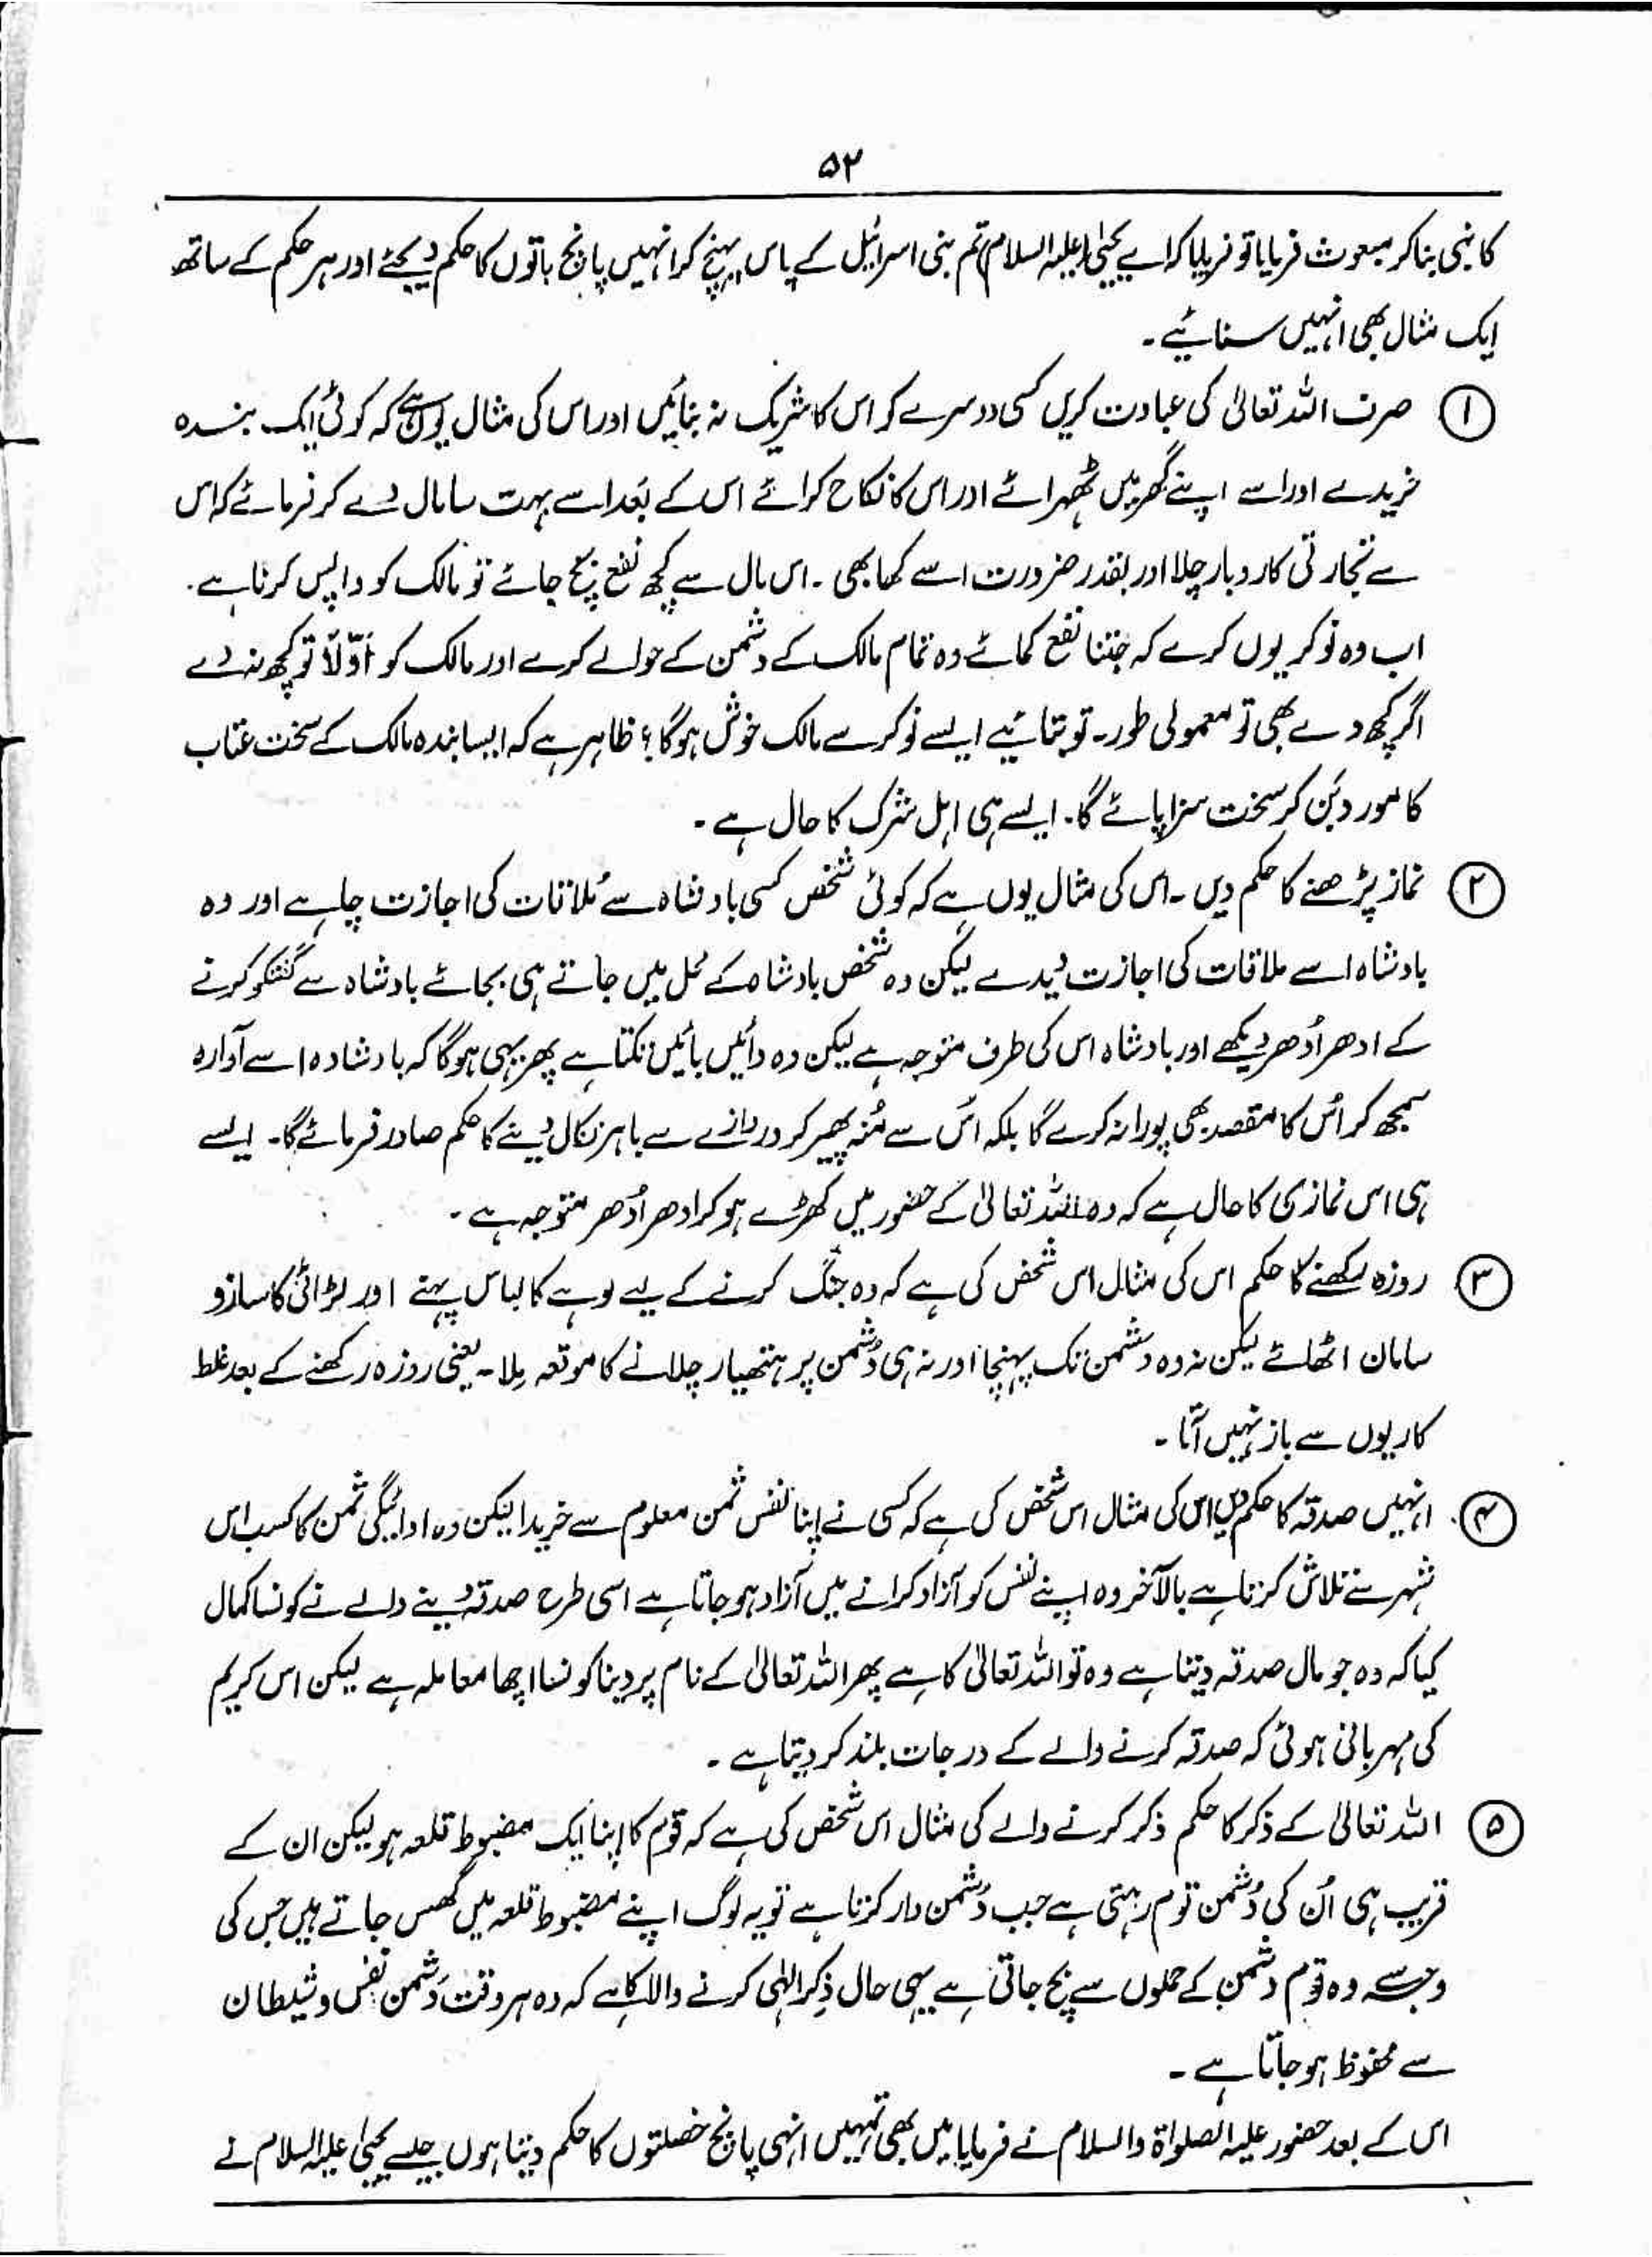 ۵۲
کا نبی بنا کر مبعوث فرمایا تو فرمایا کہ اے یحییٰ (علیہ السلام) تم بنی اسرائیل کے پاس پہنچ کر انہیں پانچ باتوں کا حکم دیجئے اور ہر حکم کے ساتھ
ایک مثال بھی انہیں سنائیے۔
① صرف اللہ تعالیٰ کی عبادت کریں کسی دوسرے کو اس کا شریک نہ بنائیں اور اس کی مثال یوں ہے کہ کوئی ایک بندہ
خریدے اور اسے اپنے گھر میں ٹھہرائے اور اس کا نکاح کرائے اس کے بعد اسے بہت سا مال دے کر فرمائے کہ اس
سے تجارتی کاروبار چلا اور بقدر ضرورت اسے کھا بھی۔ اس مال سے کچھ نفع بچ جائے تو مالک کو واپس کرنا ہے۔
اب وہ نوکر یوں کرے کہ جتنا نفع کمائے وہ تمام مالک کے دشمن کے حوالے کرے اور مالک کو اوّلاً تو کچھ نہ دے
اگر کچھ دے بھی تو معمولی طور۔ تو بتائیے ایسے نوکر سے مالک خوش ہوگا؟ ظاہر ہے کہ ایسا بندہ مالک کے سخت عتاب
کا مورد بَن کر سخت سزا پائے گا۔ ایسے ہی اہل شرک کا حال ہے۔
② نماز پڑھنے کا حکم دیں۔ اس کی مثال یوں ہے کہ کوئی شخص کسی بادشاہ سے مُلاقات کی اجازت چاہے اور وہ
بادشاہ اسے ملاقات کی اجازت دیدے لیکن وہ شخص بادشاہ کے محل میں جاتے ہی بجائے بادشاہ سے گفتگو کرنے
کے ادھر اُدھر دیکھے اور بادشاہ اس کی طرف متوجہ ہے لیکن وہ دائیں بائیں تکتا ہے پھر یہی ہوگا کہ بادشاہ اسے آوارہ
سمجھ کر اُس کا مقصد بھی پورا نہ کرے گا بلکہ اُس سے مُنہ پھیر کر دروازے سے باہر نکال دینے کا حکم صادر فرمائے گا۔ ایسے
ہی اس نمازی کا حال ہے کہ وہ اللہ تعالیٰ کے حضور میں کھڑے ہو کر ادھر اُدھر متوجہ ہے۔
③ روزہ رکھنے کا حکم اس کی مثال اس شخص کی ہے کہ وہ جنگ کرنے کے لیے لوہے کا لباس پہنے اور لڑائی کا سازو
سامان اٹھائے لیکن نہ وہ دشمن تک پہنچا اور نہ ہی دُشمن پر ہتھیار چلانے کا موقعہ مِلا۔ یعنی روزہ رکھنے کے بعد غلط
کاریوں سے باز نہیں آتا۔
④ انہیں صدقہ کا حکم دیں اس کی مثال اس شخص کی ہے کہ کسی نے اپنا نفس ثمن معلوم سے خریدا لیکن وہ ادائیگی ثمن کا کسب اس
شہر سے تلاش کرتا ہے بالآخر وہ اپنے نفس کو آزاد کرانے میں آزاد ہو جاتا ہے اسی طرح صدقہ دینے والے نے کونسا کمال
کیا کہ وہ جو مال صدقہ دیتا ہے وہ تو اللہ تعالیٰ کا ہے پھر اللہ تعالیٰ کے نام پر دینا کونسا اچھا معاملہ ہے لیکن اس کریم
کی مہربانی ہوئی کہ صدقہ کرنے والے کے درجات بلند کر دیتا ہے۔
⑤ اللہ تعالیٰ کے ذکر کا حکم ذکر کرنے والے کی مثال اس شخص کی ہے کہ قوم کا اپنا ایک مضبوط قلعہ ہو لیکن ان کے
قریب ہی اُن کی دُشمن قوم رہتی ہے جب دُشمن وار کرتا ہے تو یہ لوگ اپنے مضبوط قلعہ میں گھس جاتے ہیں جس کی
وجہ سے وہ قوم دشمن کے حملوں سے بچ جاتی ہے یہی حال ذِکر الٰہی کرنے والا کا ہے کہ وہ ہر وقت دُشمن نفس و شیطان
سے محفوظ ہو جاتا ہے۔
اس کے بعد حضور علیہ الصلواۃ والسلام نے فرمایا میں بھی تمہیں انہی پانچ خصلتوں کا حکم دیتا ہوں جیسے یحییٰ علیہ السلام نے